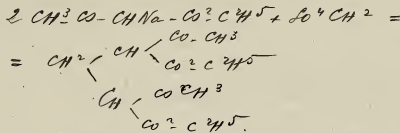 2 CH³ CO - CHNa - CO² C²H⁵ + SO⁴ CH² =
CO - CH³
= CH² CH
CO² C²H⁵
CH CO CH³
CO² C²H⁵.